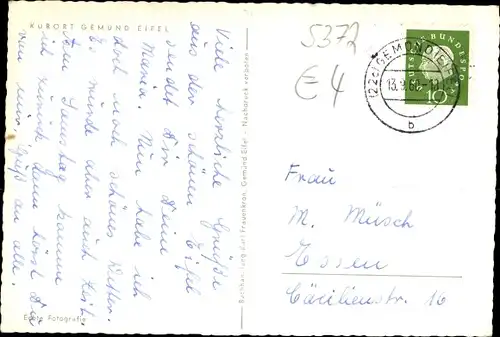 KURORT GEMÜND EIFEL
Viele herzliche Grüße
aus der schönen Eifel
sendet Dir Deine
Maria. Nun habe ich
doch noch schönes Wetter.
Es würde aber auch Zeit.
Am Samstag komme
ich zurück dann hörst Du
von mir. Gruß an alle.
Echte Fotografie
Nachdruck verboten
5372
€ 4
(22c) GEMÜND (EIFEL)
13.9.60
b
DEUTSCHE BUNDESPOST
10
Frau
M. Müsch
Essen
Cäcilienstr. 16